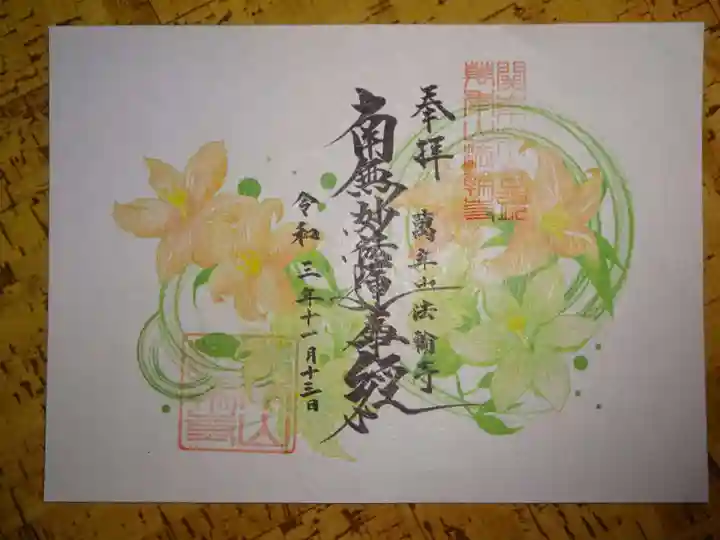 奉拝
萬年山法輪寺
南無妙法蓮華経
令和三年十一月十三日